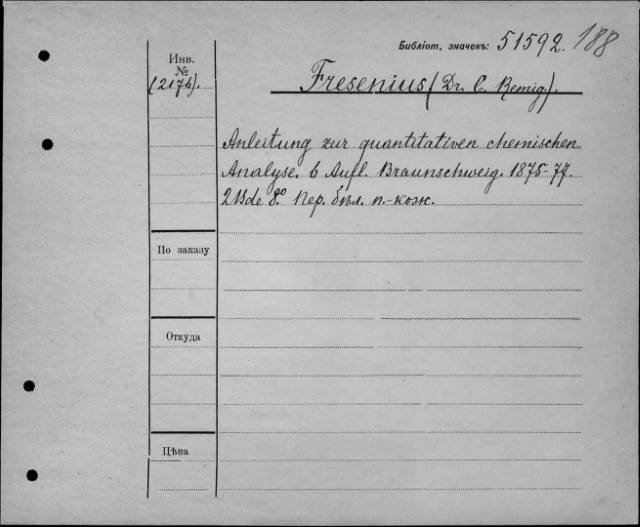 Библіот. значекъ: 51592. 188
Инв.
№
(2176).
Fresenius (Dr. C. Remig.).
Anleitung zur quantitativen chemischen
Analyse. 6 Aufl. Braunschweig. 1875-77.
2 Bde 8.° Пер. бѣл. п.-кож.
По заказу
Откуда
Цѣна